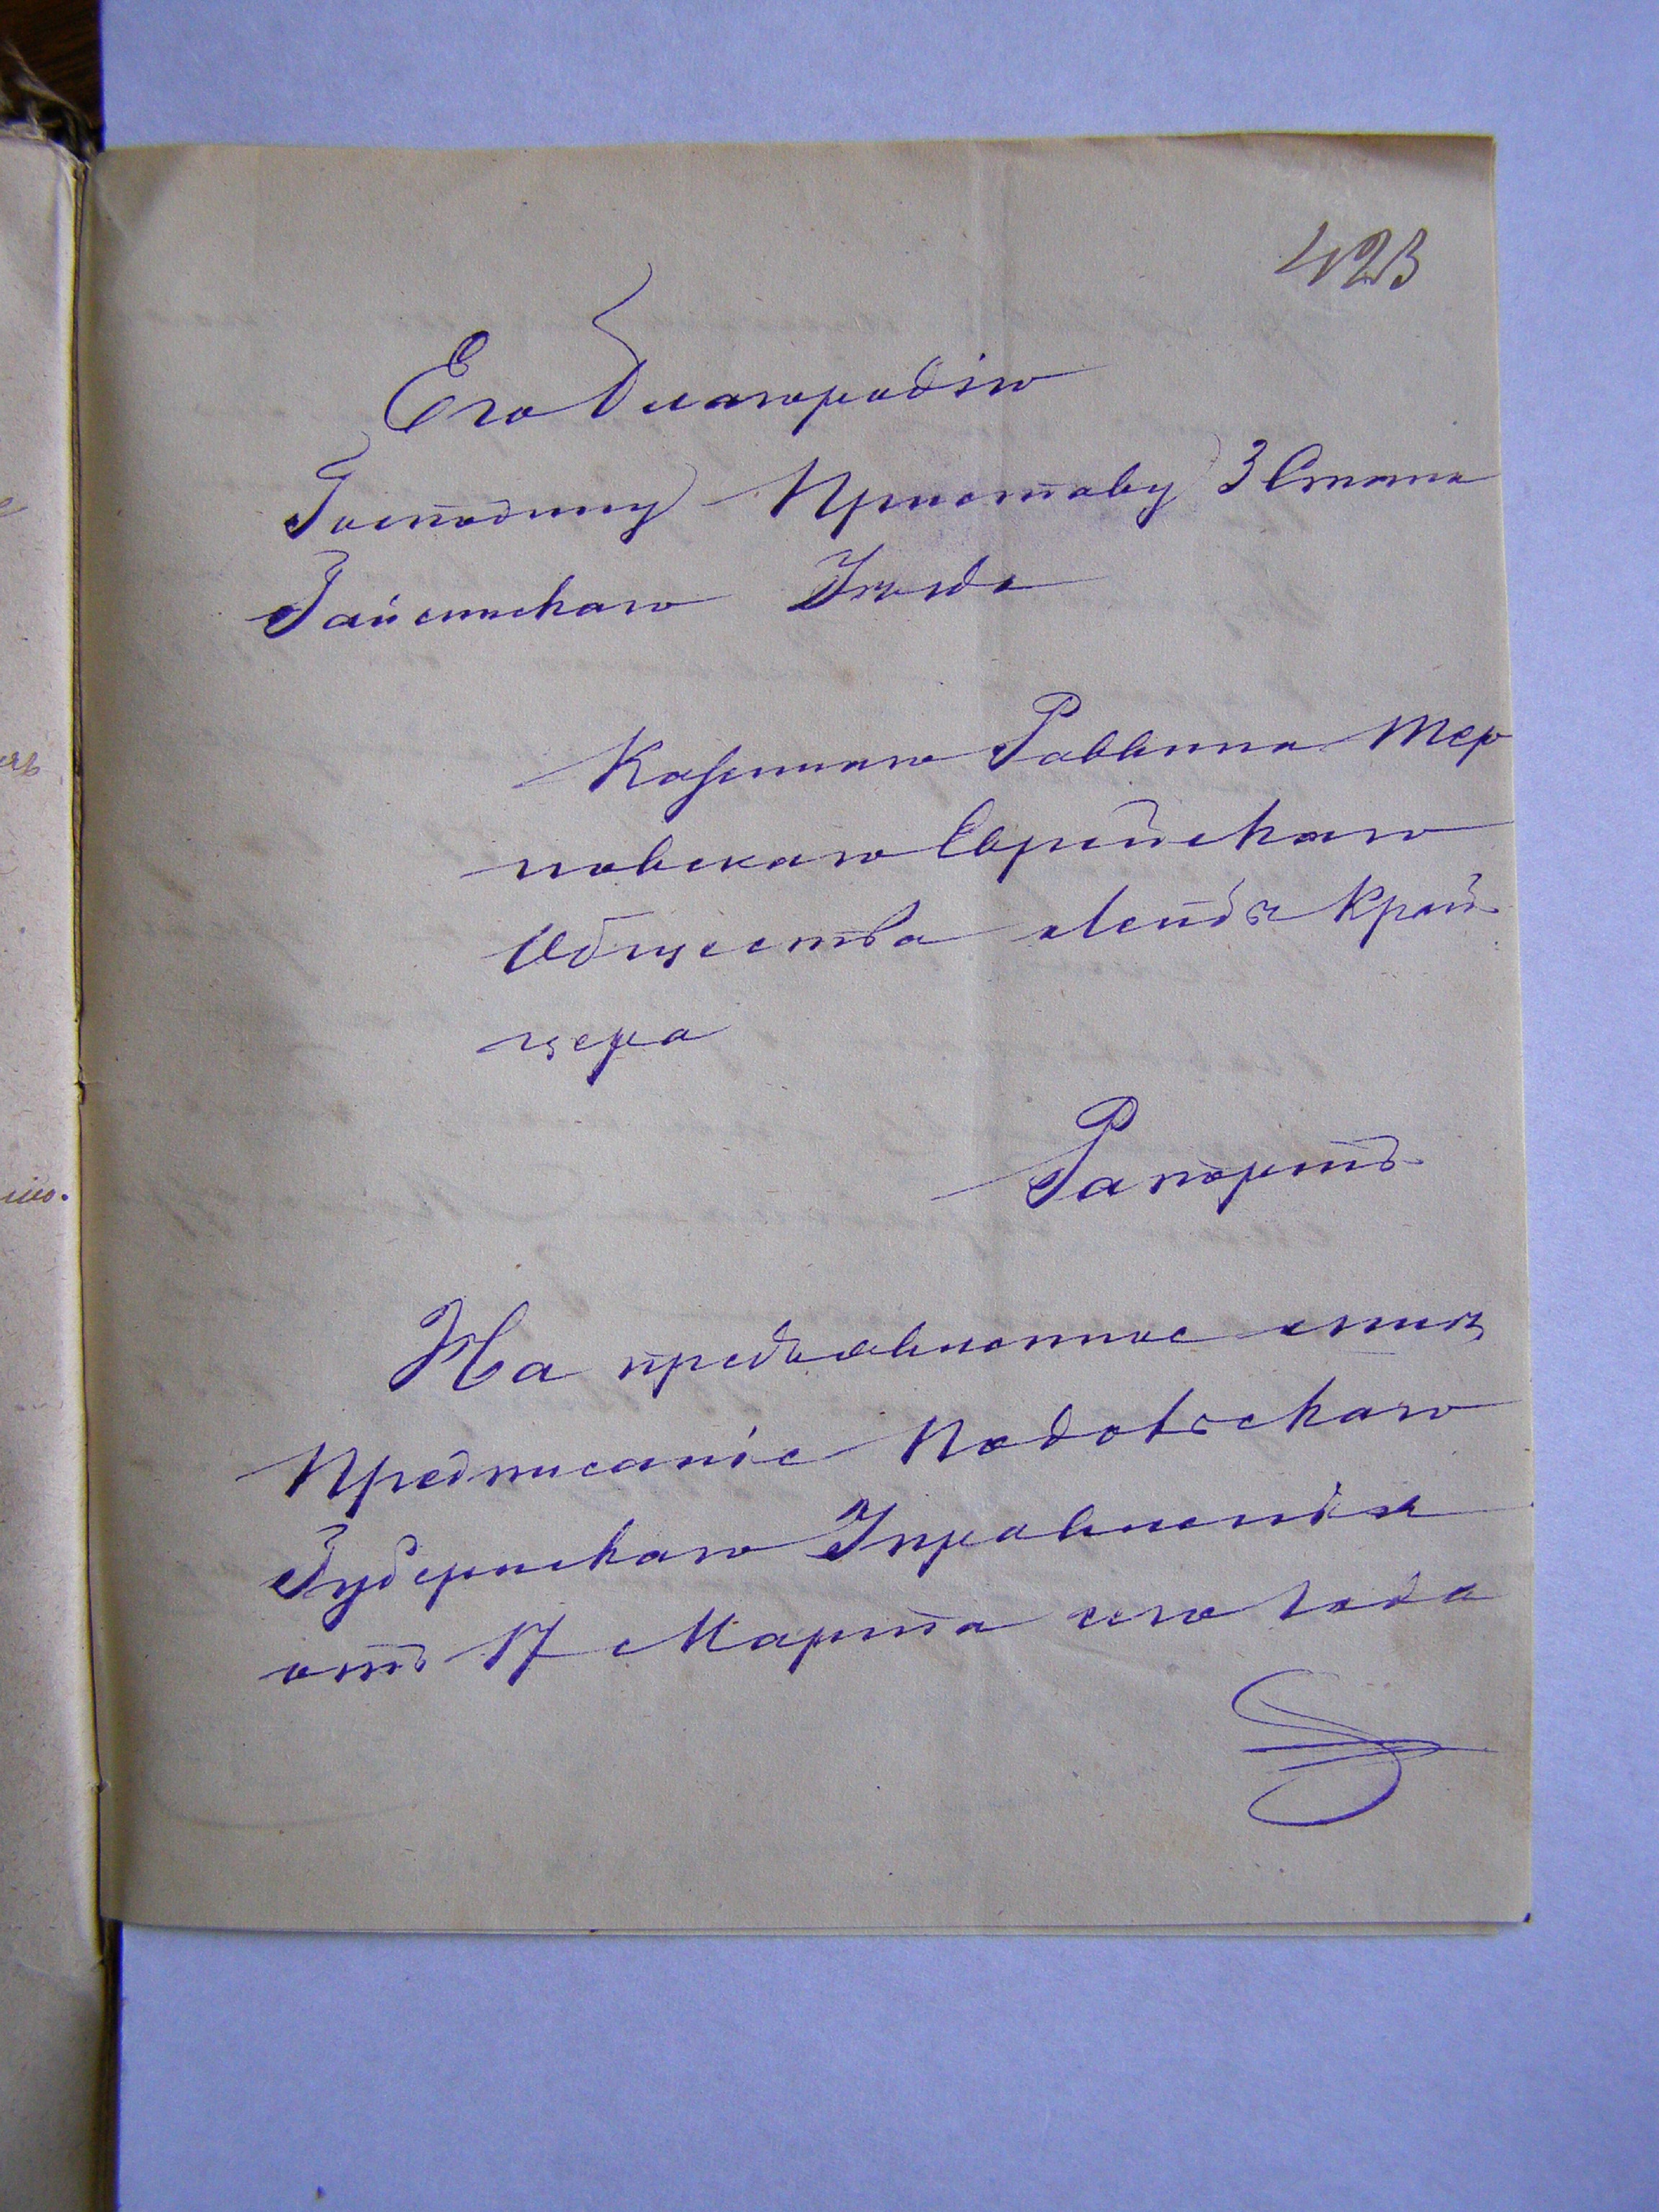 423
Его Благородію
Господину Приставу 3 Стана
Гайсинскаго Уезда
Казеннаго Раввина Тер
новскаго Еврейскаго
Общества Край
цера
Рапортъ
На предъявленное
Предписаніе Подольскаго
Губернскаго Управленія
отъ 17 Марта сего года